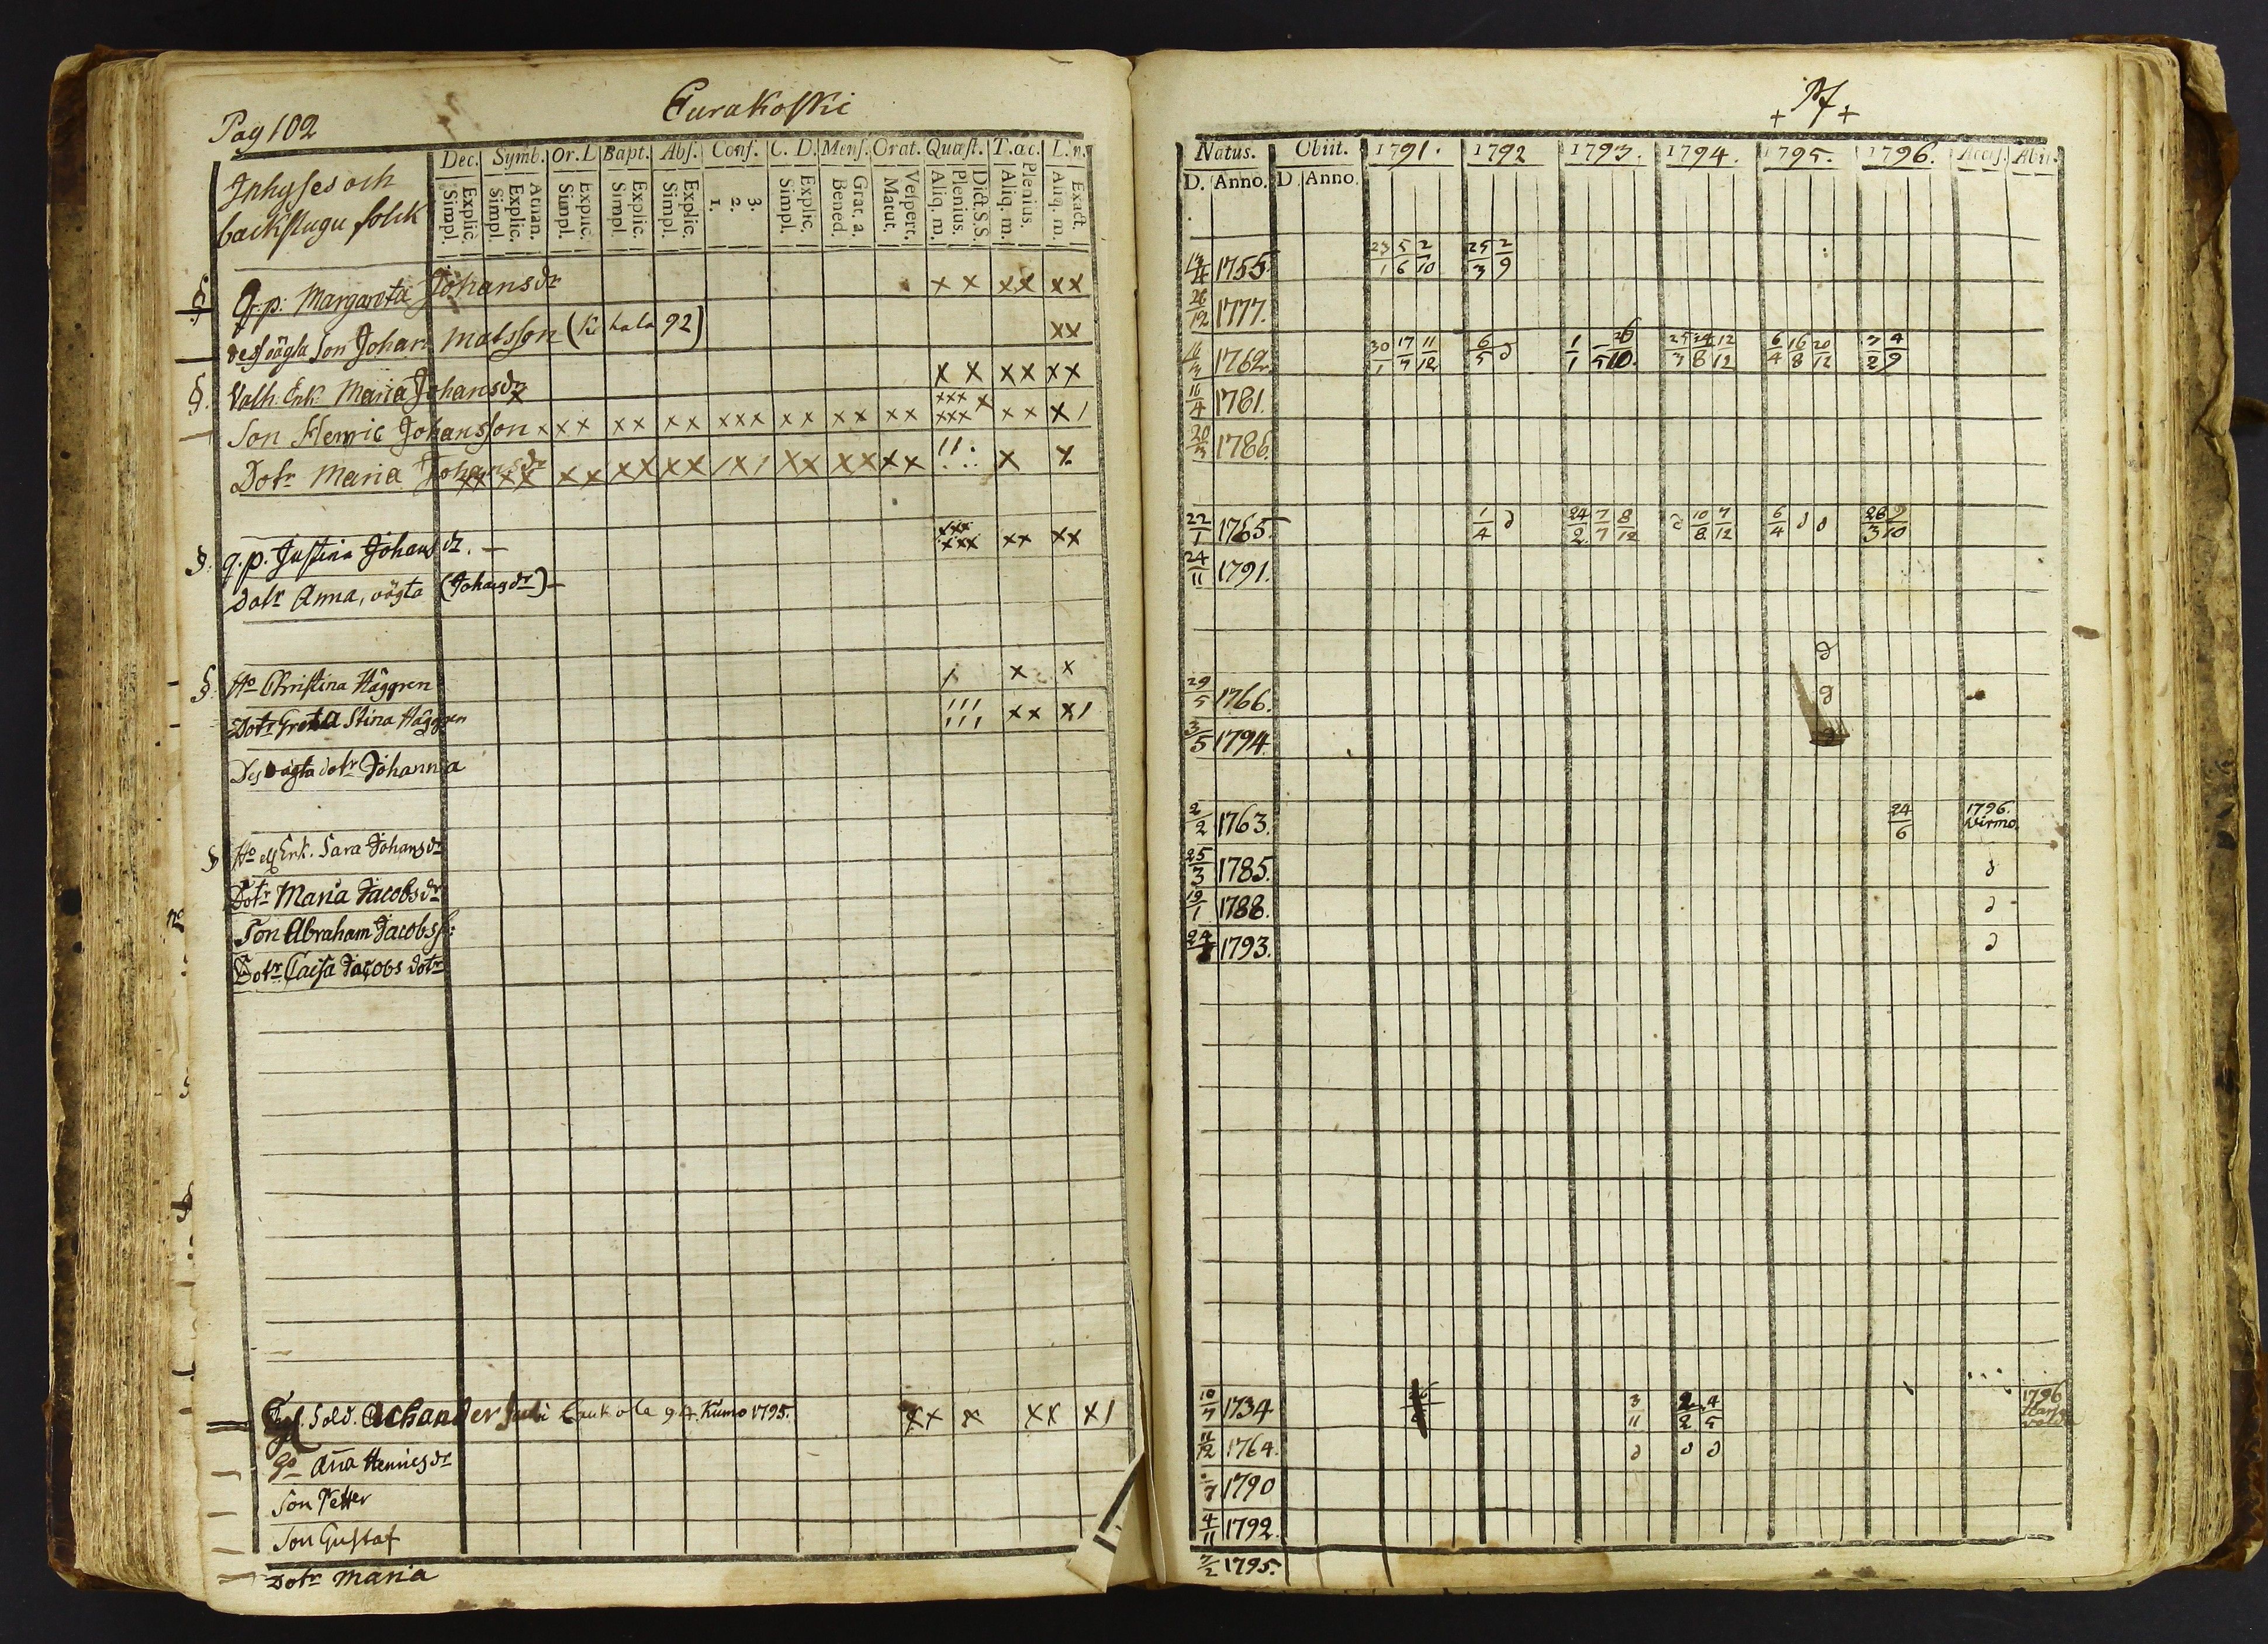 Pag 102
Eurakoski
Inhyses och
backstugu folck
Dec. Symb. Or. L Bapt. Abs. Conf. C. D. Mens. Orat. Quæst. T. œc. L. n.
Simpl. Explic. Simpl. Explic. Athan. Simpl. Explic. Simpl. Explic. Simpl. Explic. 1. 2. 3. Simpl. Explic. Bened. Grat. a. Matut. Vespert. Aliq. m. Plenius. Dict. S.S. Aliq. m. Plenius. Aliq. m. Exact.
§ q. p. Margareta Johans dr x x xx xx
des oägta Son Johan Matsson 92) xx
§. Enk. Maria Johans dr x x xx xx
Son Henric Johansson xxx xx xx xxx xx xx xx xxx xxx x xx x/
Dotr Maria Johans dr xx xx xx xx xx /x/ xx xx xx x x
§. q. p. Justina Johans dr. xxx xxx xx xx
Dotr Anna, oägta (Johans dr)
§. Ho Christina Häggren / x x
Dotr Greta Stina Häggren /// /// xx x/
Des oägta dotr Johanna
Ho Enk. Sara Johans dr
Dotr Maria Jacobs dr
Son Abraham Jacobss:
Dotr Caisa Jacobs dotr
Sold. Achander 94. Kumo 1795. xx x xx x/
Anna Henrics dr
Son Petter
Son Gustaf
Dotr Maria
Natus. Obiit. 1791. 1792 1793. 1794. 1795. 1796. Access. Abit.
D. Anno. D. Anno.
13/4 1755. 23/1 5/6 2/10 25/3 2/9
26/12 1777.
16/3 1762. 30/1 17/7 11/12 6/5 d 1/1 25/3 24/8 12/12 6/4 16/8 20/12 7/2 4/9
11/4 1781.
20/3 1786.
22/1 1765. 1/4 d 24/2 7/7 8/12 d 10/8 7/12 6/4 d d 28/3 9/10
24/11 1791.
d
29/5 1766. d
3/5 1794. d
2/2 1763. 24/6 1796. Virmo.
25/3 1785. d
19/1 1788. d
1793. d
10/7 1734. 3/11 2/2 4/5 1796
11/12 1764. d d d
1790
4/11 1792.
7/2 1795.